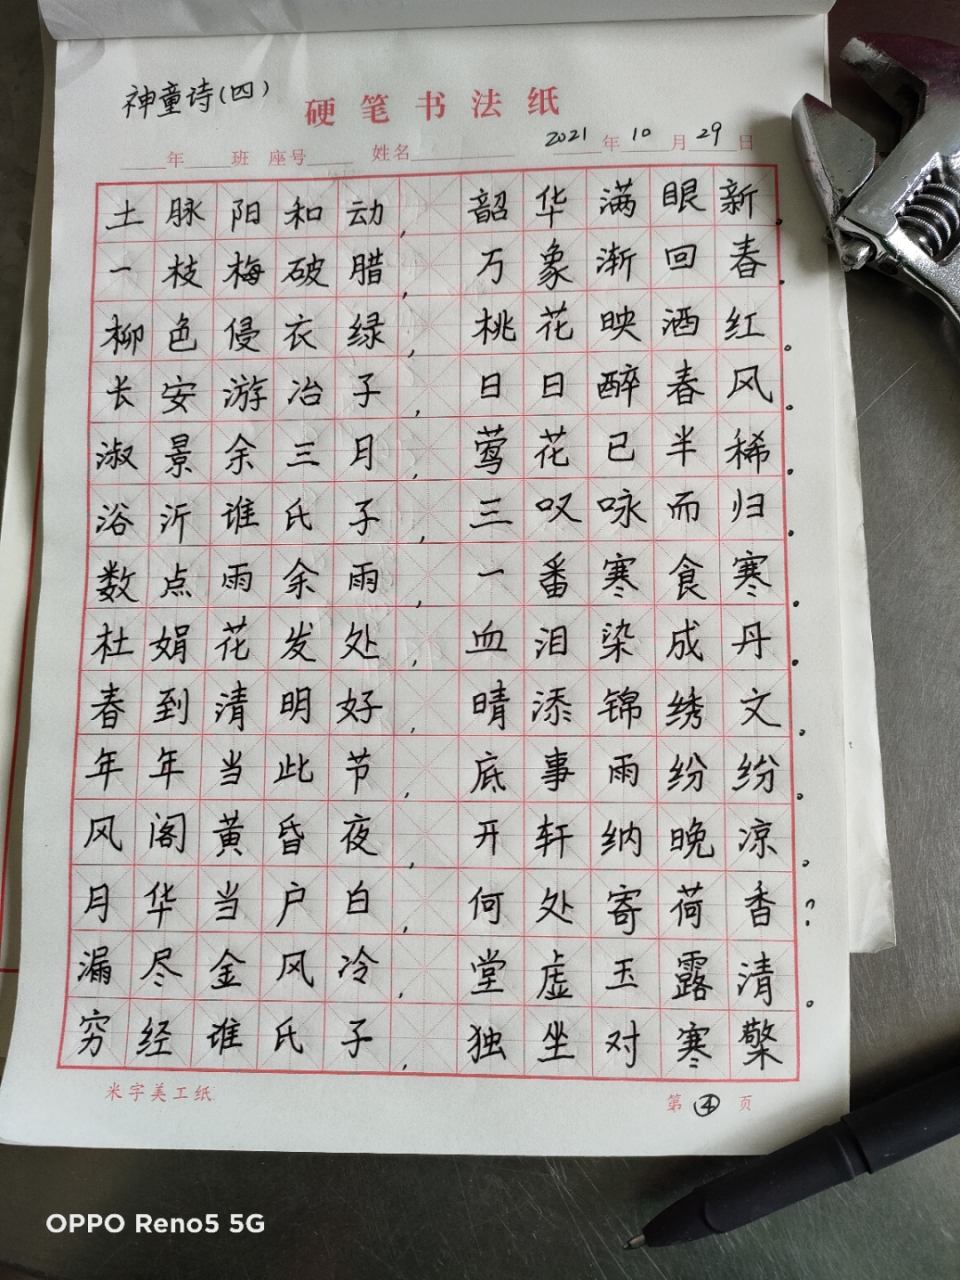 神童诗(四)
硬笔书法纸
年 班 座号 姓名 2021年10月29日
土脉阳和动,韶华满眼新。
一枝梅破腊,万象渐回春。
柳色侵衣绿,桃花映洒红。
长安游冶子,日日醉春风。
淑景余三月,莺花已半稀。
浴沂谁氏子,三叹咏而归。
数点雨余雨,一番寒食寒。
杜娟花发处,血泪染成丹。
春到清明好,晴添锦绣文。
年年当此节,底事雨纷纷。
风阁黄昏夜,开轩纳晚凉。
月华当户白,何处寄荷香?
漏尽金风冷,堂虚玉露清。
穷经谁氏子,独坐对寒檠
米字美工纸 第④页
OPPO Reno5 5G